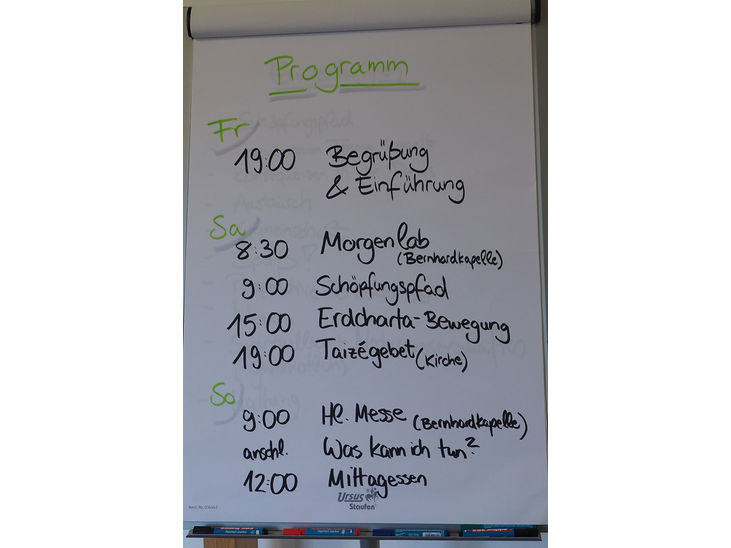 Programm
Fr
19:00 Begrüßung
& Einführung
Sa
8:30 Morgenlob
(Bernhardkapelle)
9:00 Schöpfungspfad
15:00 Erdcharta-Bewegung
19:00 Taizégebet (Kirche)
So
9:00 Hl. Messe (Bernhardkapelle)
anschl. Was kann ich tun?
12:00 Mittagessen
Ursus
Staufen